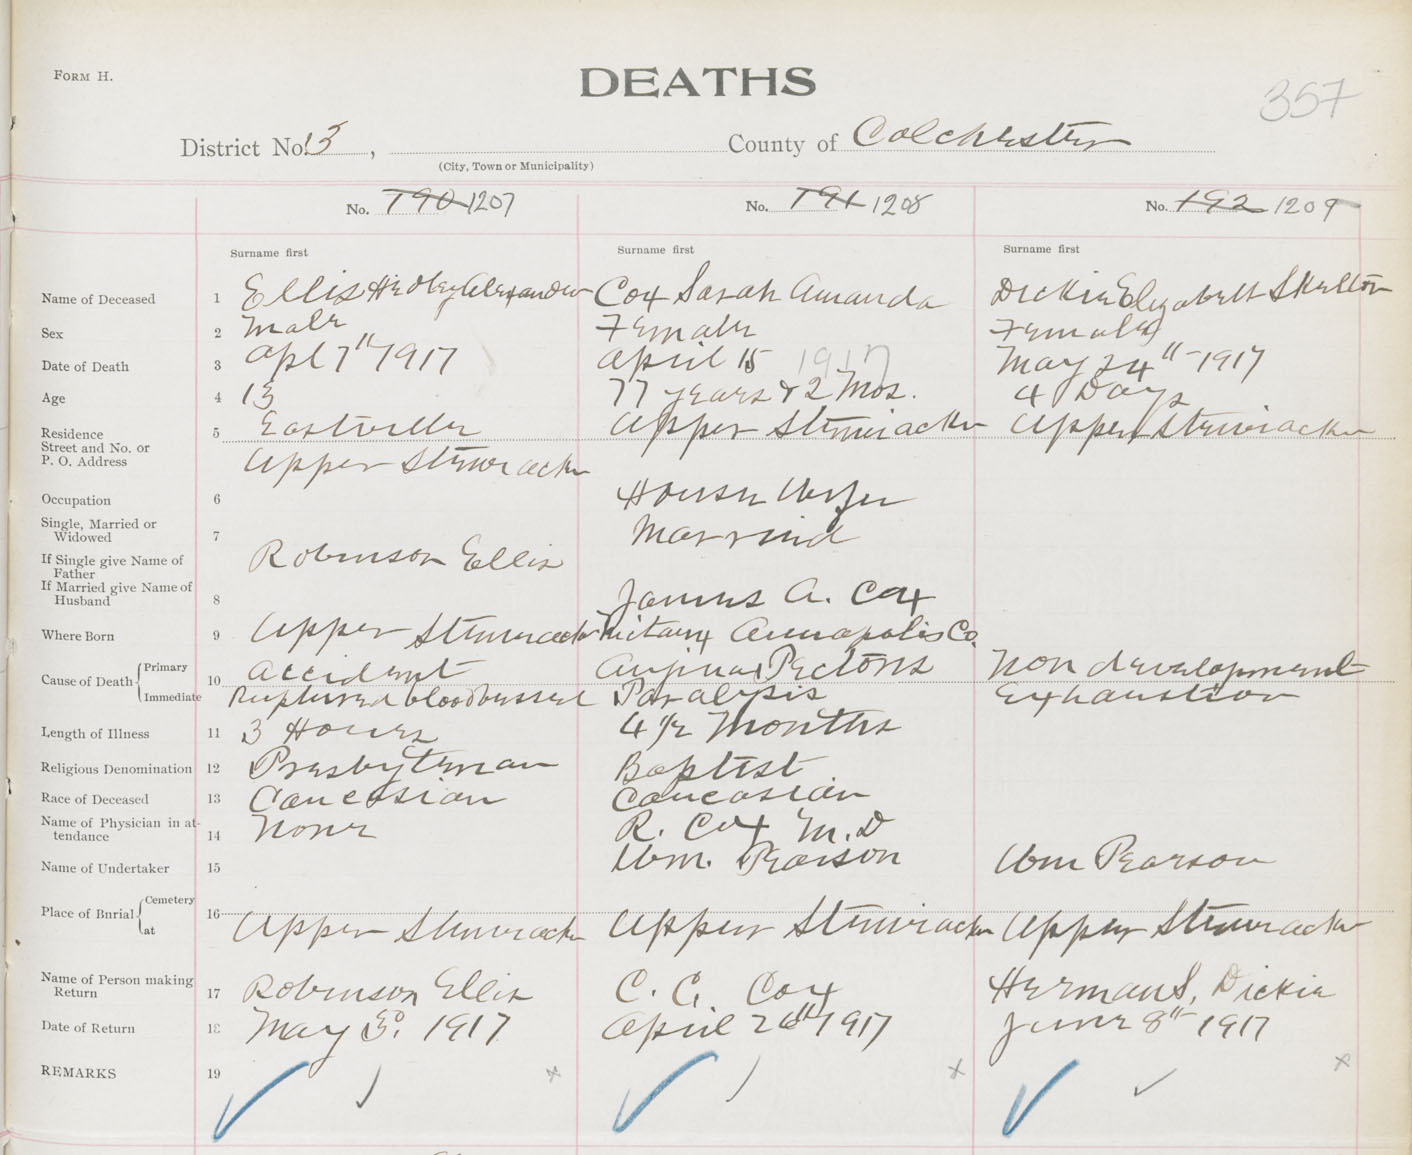 FORM H.
DEATHS
357
District No. 13, County of Colchester
(City, Town or Municipality)
No. 790 1207 No. 791 1208 No. 792 1209
Surname first Surname first Surname first
Name of Deceased 1 Ellis Hedley Alexander Cox Sarah Amanda Dickie Elizabeth Skelton
Sex 2 Male Female Female
Date of Death 3 Apl 7th 1917 April 15 1917 May 24th 1917
Age 4 13 77 years & 2 Mos. 4 Days
Residence Street and No. or P. O. Address 5 Eastville Upper Stewiacke Upper Stewiacke
Upper Stewiacke
Occupation 6 House Wife
Single, Married or Widowed 7 Married
If Single give Name of Father Robinson Ellis
If Married give Name of Husband 8 James A. Cox
Where Born 9 Upper Stewiacke Annapolis Co.
Cause of Death Primary 10 Accident Angina Pectoris Non development
Immediate Ruptured blood vessel Paralysis Exhaustion
Length of Illness 11 3 Hours 4 1/2 Months
Religious Denomination 12 Presbyterian Baptist
Race of Deceased 13 Caucasian Caucasian
Name of Physician in attendance 14 None R. Cox M.D
Name of Undertaker 15 Wm. Pearson Wm Pearson
Place of Burial Cemetery 16
at Upper Stewiacke Upper Stewiacke Upper Stewiacke
Name of Person making Return 17 Robinson Ellis C. C. Cox Herman S. Dickie
Date of Return 18 May 1917 April 26th 1917 June 8th 1917
REMARKS 19